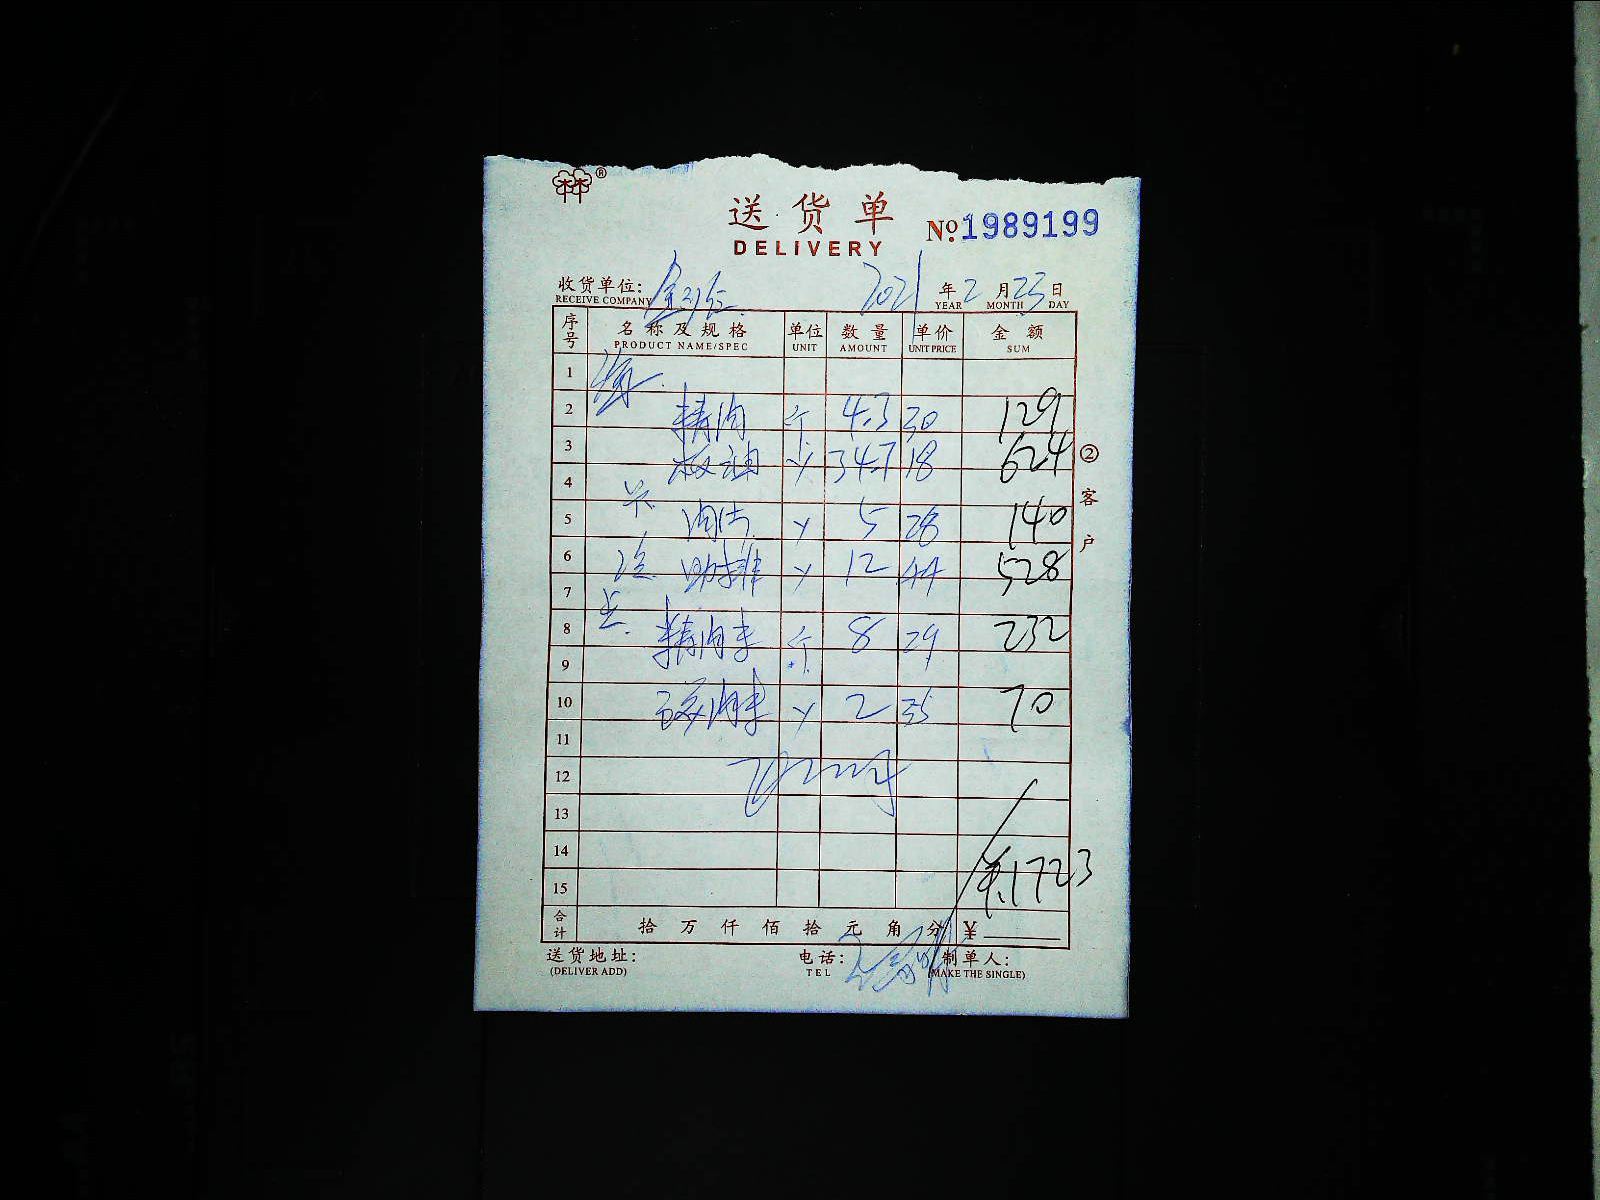 送货单
DELIVERY
№:1989199
收货单位: 2021 年 2 月 23 日
RECEIVE COMPANY YEAR MONTH DAY
序号 名称及规格 单位 数量 单价 金额
PRODUCT NAME/SPEC UNIT AMOUNT UNIT PRICE SUM
1
2 精肉 斤 4.3 30 129
3 板油 34.7 18 624
4
5 5 28 140
6 肋排 12 44 528
7
8 精肉末 斤 8 29 232
9
10 2 35 70
11
12
13
14
15 ¥1723
合计 拾 万 仟 佰 拾 元 角 分 ¥
送货地址: 电话: 制单人:
(DELIVER ADD) TEL (MAKE THE SINGLE)
② 客户